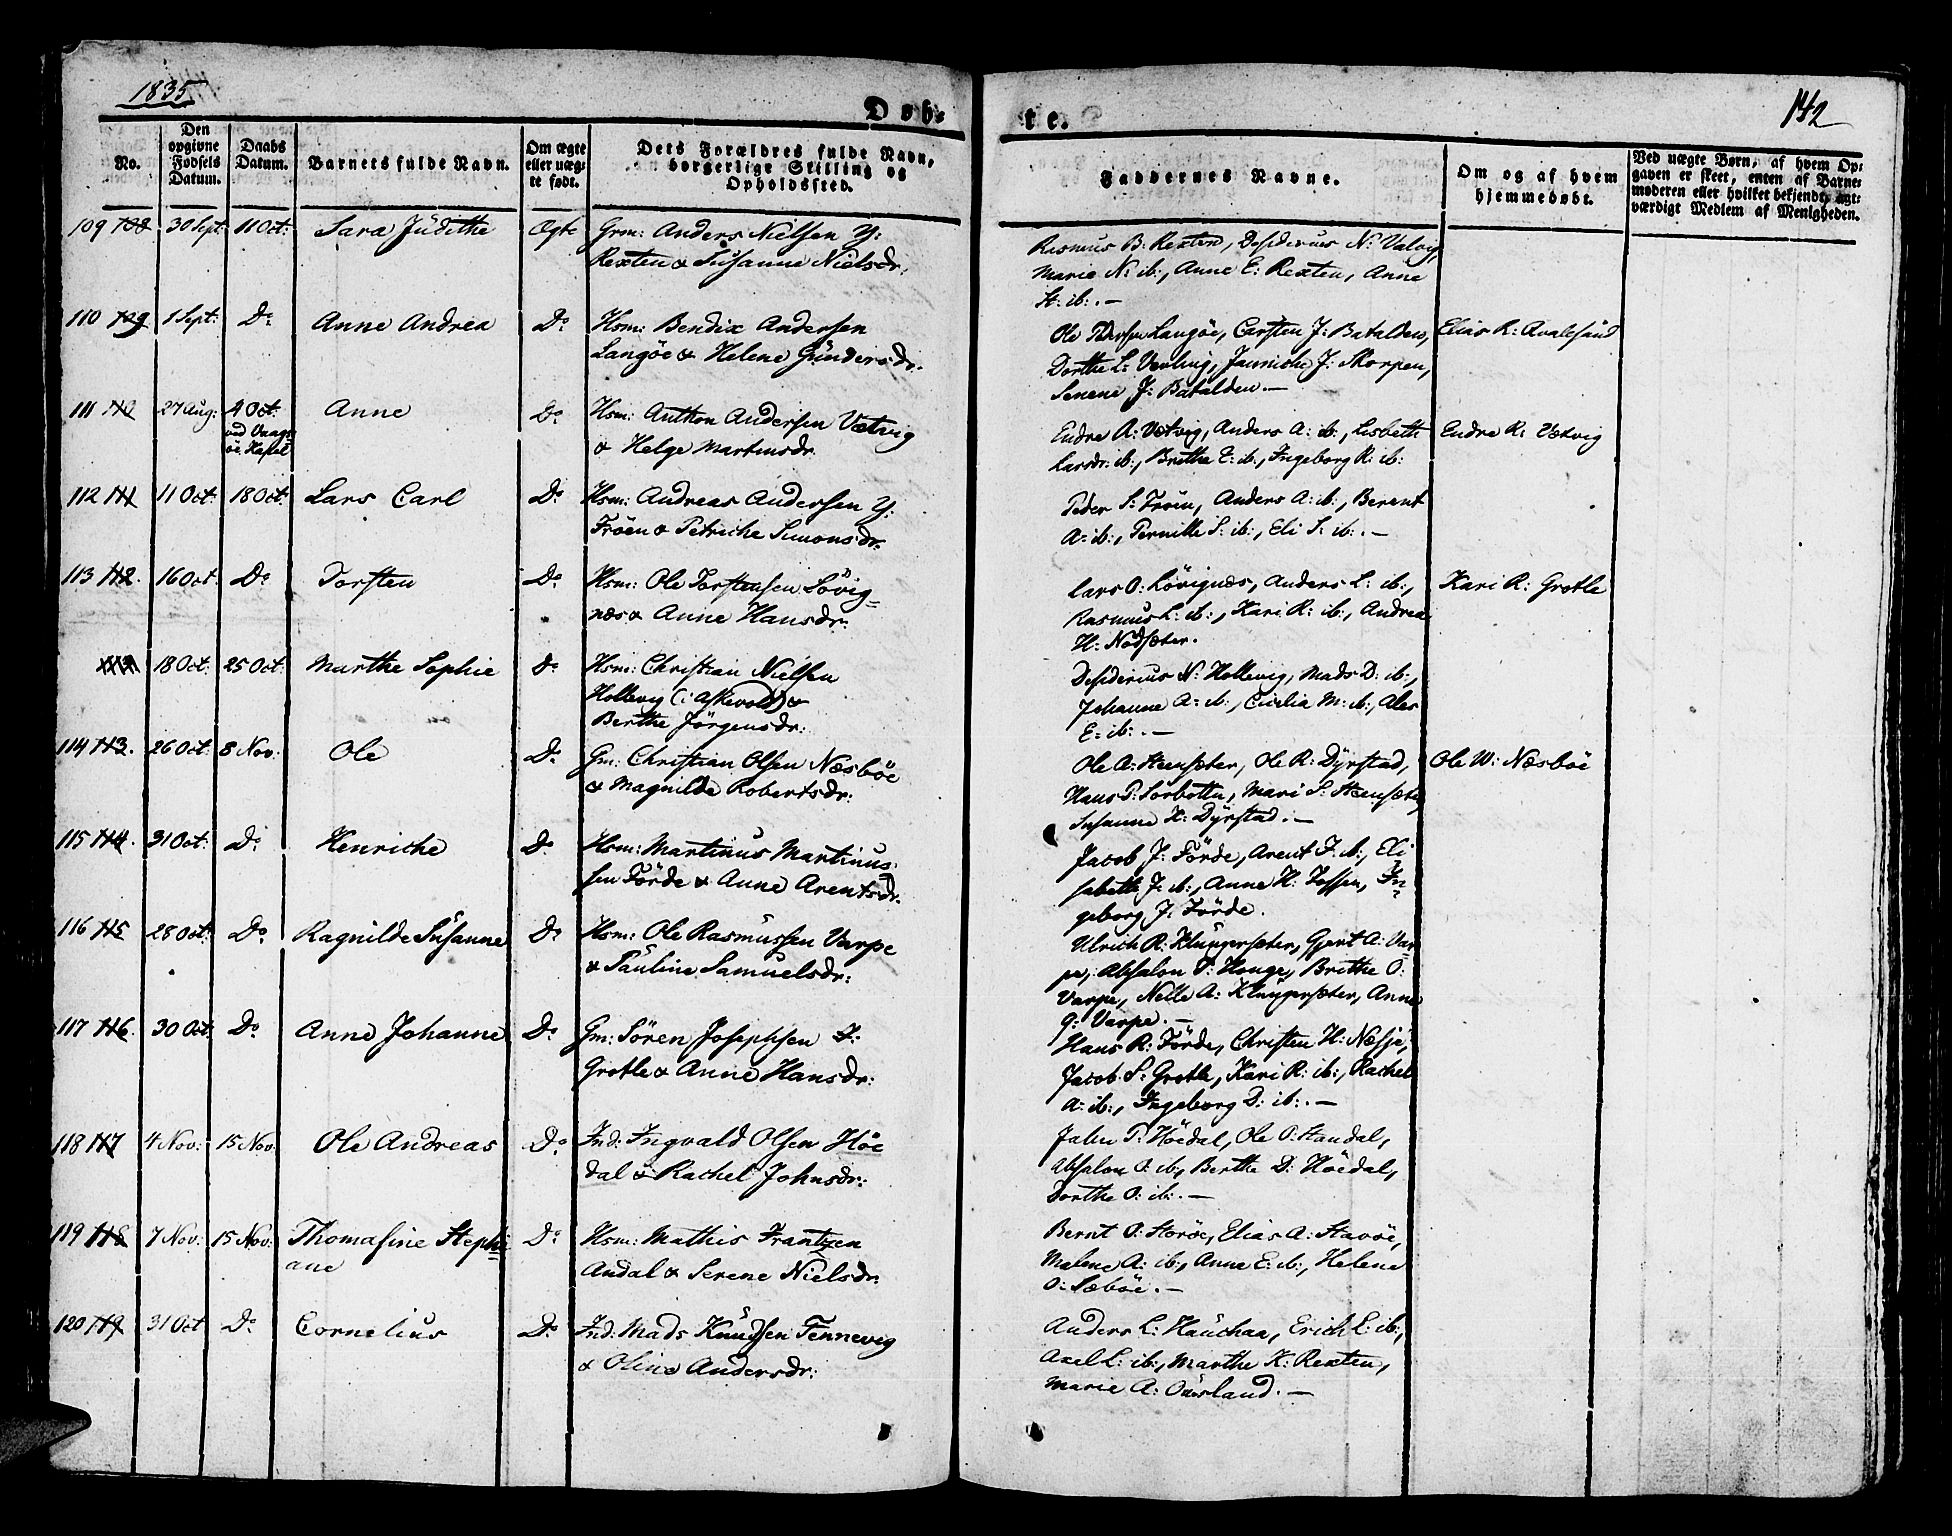 1835
Døb-
te.
142
No.
Den opgivne Fødsels Datum.
Daabs Datum.
Barnets fulde Navn.
Om ægte eller uægte født.
Dets Forældres fulde Navn, borgerlige Stilling og Opholdssted.
Faddernes Navne.
Om og af hvem hjemmedøbt.
Ved uægte Børn, af hvem Opgaven er skeet, enten af Barnemoderen eller hvilket bekjendt, agtværdigt Medlem af Menigheden.
109 108 30 Sept 11 Oct: Sara Judithe Ægte Grm: Anders Nielsen Y:
Rexten & Susanne Nielsdr.
Rasmus B: Rexten, Desiderius N: Valvig,
Marie N: ib:, Anne E: Rexten, Anne
St: ib:. —
110 109 1 Sept: Do. Anne Andrea Do. Hsm: Bendix Andersen
Langöe & Helene Gundersdr.
Ole Langöe, Carsten J: Batalden,
Dorthe L: Jannicke J: Skorpen,
Senene J: Batalden. —
Elias R: Qvalesund
111 110 27 Aug: 4 Oct: ved Vaagsöe Kapel Anne Do. Hsm: Anthon Andersen Vetvig
& Helge Martinsdr.
Endre A: Vetvig, Anders A: ib:, Lisbeth
Larsdr: ib:, Brithe E: ib:, Ingeborg R: ib:
Endre R: Vetvig
112 111 11 Oct: 18 Oct: Lars Carl Do. Hsm: Andreas Andersen Y:
Fröen & Petriche Simonsdr.
Peder S: Fröen, Anders A: ib:, Berent
A: ib:, Pernille S: ib:, Eli S: ib:. —
113 112. 16 Oct. Do. Torsten Do. Hsm: Ole Torstensen Lövig=
næs & Anne Hansdr:
Lars O: Lövignæs, Anders L: ib:,
Rasmus L: ib:, Kari R: ib:, Andrea
H: Nödsæter.
Kari R: Grotle
113. 18 Oct: 25 Oct: Marthe Sophie Do. Hsm: Christian Nielsen
Hollevig (i Askevold) &
Berthe Jörgensdr:
Desiderius N: Hollevig, Mads D: ib:,
Johanne A: ib:, Cicilia M: ib:, Ales
E: ib:. —
114 113. 26 Oct: 8 Nov: Ole Do. Gm: Christian Olsen Næsböe
& Magnilde Robertsdr:
Ole A: Steensæter, Ole R: Dyrstad,
Hans P: Sorbotten, Mari S: Steensæter,
Susanne H: Dyrstad. —
Ole W: Næsböe
115 114. 31 Oct: Do. Henriche Do. Hsm: Martinus Martinus-
sen Förde & Anne Arentsdr.
Jacob J: Förde, Arent J: ib:, Eli
sebeth J: ib:, Anne H: In=
geborg J: Förde.
116 115 28 Oct: Do. Ragnilde Susanne Do. Hsm: Ole Rasmussen Varpe
& Pauline Samuelsdr:
Ulrich R: Klungersæter, Gjert A: Var-
pe, Absalon P: Houge, Brithe O:
Varpe, Nelle A: Klungersæter, Anne
G: Varpe. —
117 116. 30 Oct. Do. Anne Johanne Do. Gm: Sören Josephsen
Grotle & Anne Hansdr:
Hans R: Förde, Christen H: Næsje,
Jacob S: Grotle, Kari R: ib:, Rachel
A: ib:, Ingeborg D: ib:. —
118 117 4 Nov: 15 Nov: Ole Andreas Do. Ind: Ingvald Olsen Höe
dal & Rachel Johnsdr:
John P: Höedal, Ole O: Standal,
Absalon O: ib:, Berthe D: Höedal,
Dorthe O: ib:. —
119 118 7 Nov: 15 Nov: Thomasine Stephi
ane Do. Hsm: Mathis Frantzen
Andal & Serene Nielsdr.
Bernt O: Storöe, Elias A: Stavöe,
Malene A: ib:, Anne E: ib:, Helene
O: Sæböe. —
120 119. 31 Oct Do. Cornelius Do. Ind: Mads Knudsen Tennevig
& Oline Andersdr:
Anders L: Hauchaa, Erich L: ib:,
Axel L: ib:, Marthe K: Rexten,
Marie A: Ousland. —